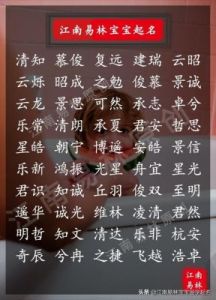 江南易林宝宝起名
清知 慕俊 复远 建瑞 云昭
云烁 昭成 之勉 俊慕 景诚
云龙 景思 可然 承志 卓兮
乐常 清朗 承夏 君安 哲思
星皓 朝宁 博遥 安皓 景信
乐新 鸿振 光星 舟宜 星光
君识 知诚 丘羽 俊双 至明
遥华 诚光 维林 凌清 君然
明哲 知文 清达 乐非 杭安
奇辰 兮冉 之捷 飞越 浩卓
江南
易林